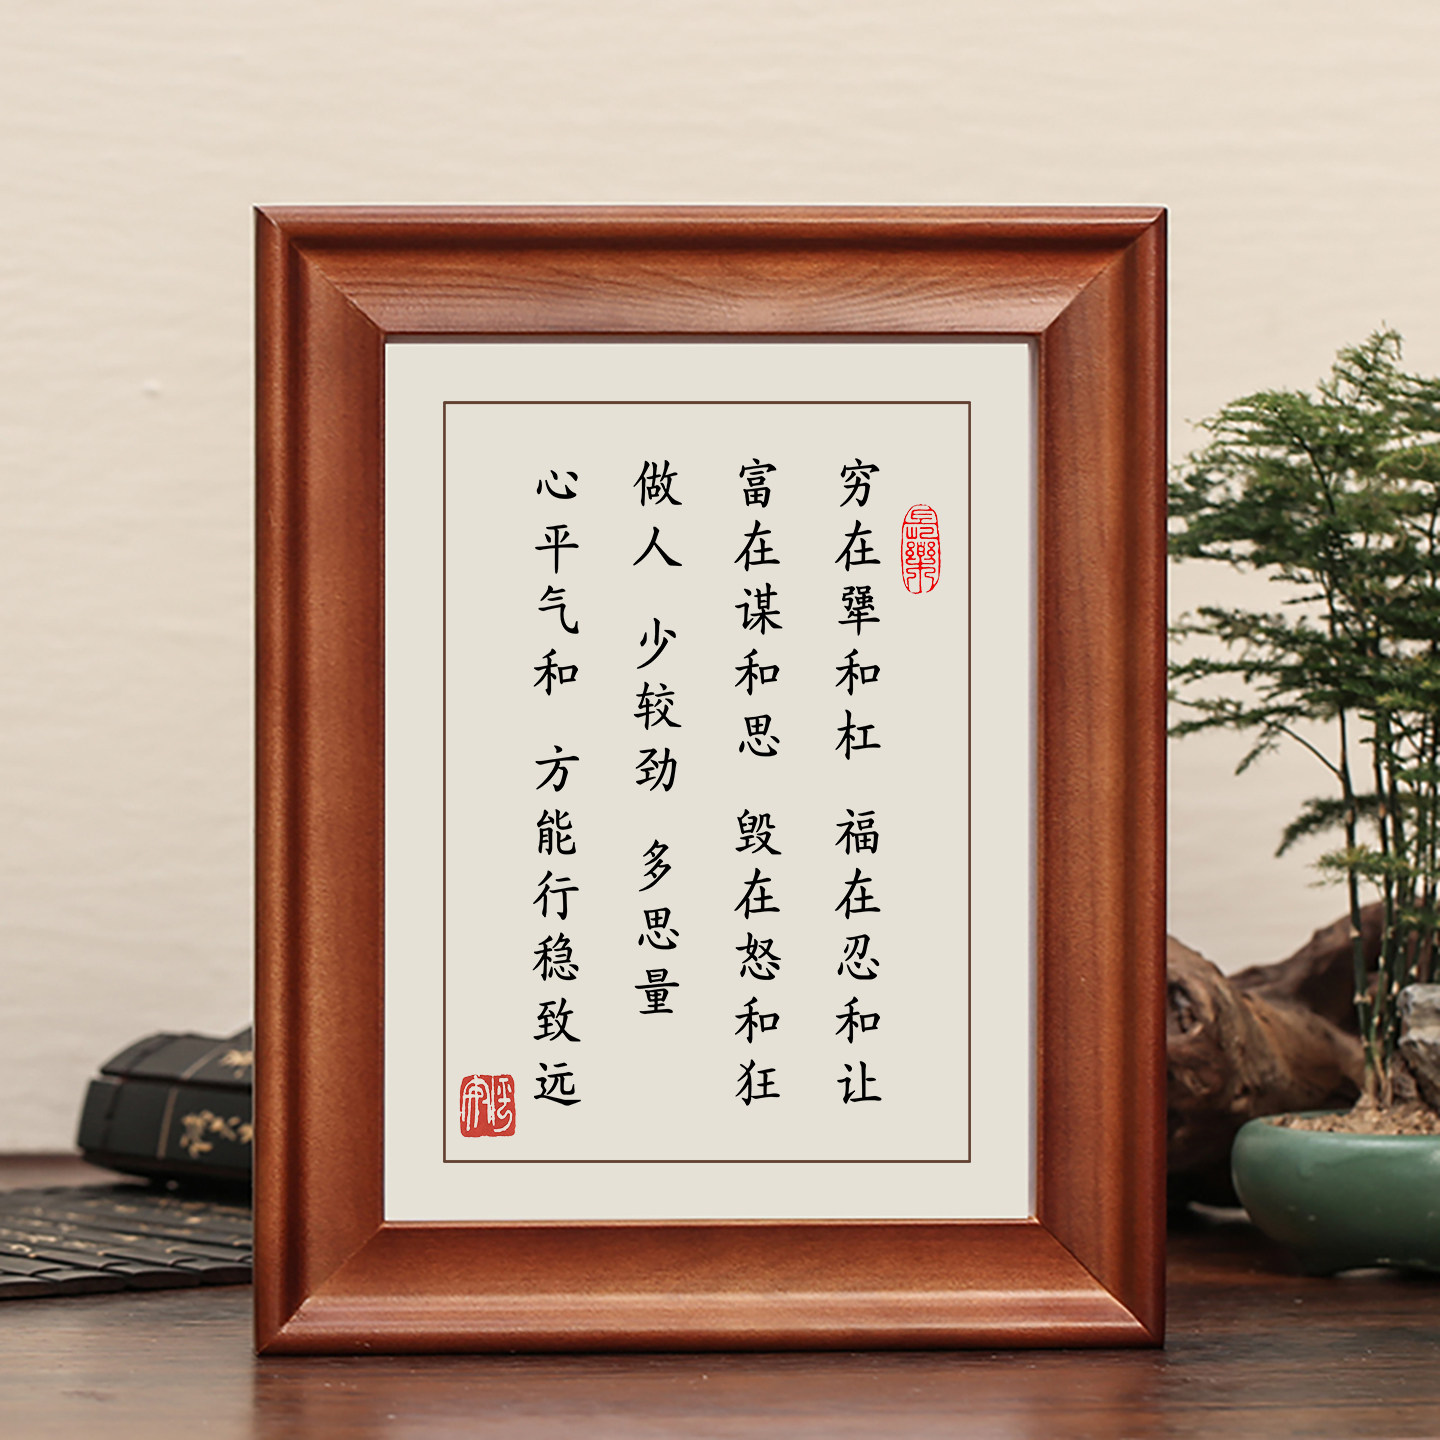 穷在犟和杠 福在忍和让
富在谋和思 毁在怒和狂
做人 少较劲 多思量
心平气和 方能行稳致远